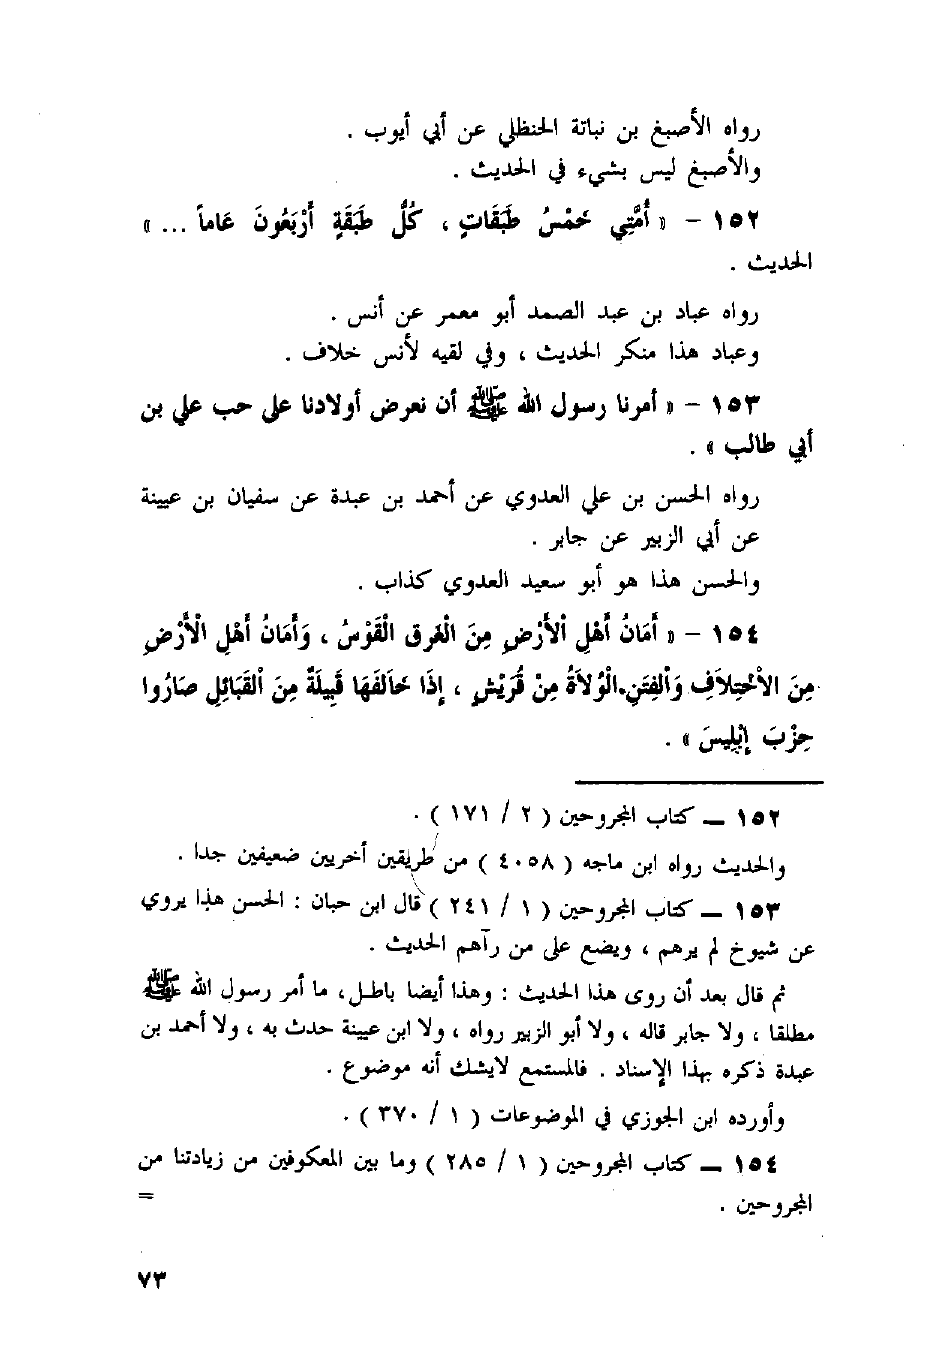 رواه الأصبغ بن نباتة الحنظلي عن أبي أيوب .
والأصبغ ليس بشيء في الحديث .
١٥٢ - « أُمَّتِي خَمْسُ طَبَقَاتٍ ، كُلُّ طَبَقَةٍ أَرْبَعُونَ عَاماً ... »
الحديث .
رواه عباد بن عبد الصمد أبو معمر عن أنس .
وعباد هذا منكر الحديث ، وفي لقيه لأنس خلاف .
١٥٣ - « أمرنا رسول الله ﷺ أن نعرض أولادنا على حب علي بن
أبي طالب » .
رواه الحسن بن علي العدوي عن أحمد بن عبدة عن سفيان بن عيينة
عن أبي الزبير عن جابر .
والحسن هذا هو أبو سعيد العدوي كذاب .
١٥٤ - « أَمَانُ أَهْلِ الأَرْضِ مِنَ الْغَرقِ القَوْسُ ، وَأَمَانُ أَهْلِ الأَرْضِ
مِنَ الاخْتِلاَفِ وَالْفِتَنِ.الْوُلاَةُ مِنْ قُرَيْشٍ ، إِذَا خَالَفَهَا قَبِيلَةٌ مِنَ القَبَائِلِ صَارُوا
حِزْبَ إِبْلِيسَ » .
١٥٢ ــ كتاب المجروحين ( ٢ / ١٧١ ) .
والحديث رواه ابن ماجه ( ٤٠٥٨ ) من طريقين أخريين ضعيفين جدا .
١٥٣ ــ كتاب المجروحين ( ١ / ٢٤١ ) قال ابن حبان : الحسن هذا يروي
عن شيوخ لم يرهم ، ويضع على من رآهم الحديث .
ثم قال بعد أن روى هذا الحديث : وهذا أيضا باطل ، ما أمر رسول الله ﷺ
مطلقا ، ولا جابر قاله ، ولا أبو الزبير رواه ، ولا ابن عيينة حدث به ، ولا أحمد بن
عبدة ذكره بهذا الإسناد . فالمستمع لايشك أنه موضوع .
وأورده ابن الجوزي في الموضوعات ( ١ / ٣٧٠ ) .
١٥٤ ــ كتاب المجروحين ( ١ / ٢٨٥ ) وما بين المعكوفين من زيادتنا من
المجروحين . =
٧٣